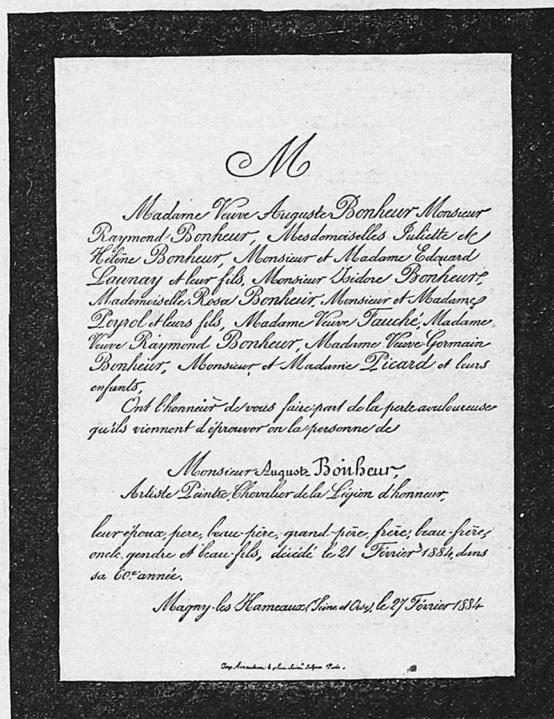 M
Madame Veuve Auguste Bonheur Monsieur
Raymond Bonheur, Mesdemoiselles Juliette et
Hélène Bonheur, Monsieur et Madame Edouard
Launay et leur fils, Monsieur Isidore Bonheur,
Mademoiselle Rosa Bonheur, Monsieur et Madame
Peyrol et leurs fils, Madame Veuve Fauché, Madame
Veuve Raymond Bonheur, Madame Veuve Germain
Bonheur, Monsieur et Madame Picard et leurs
enfants,
Ont l'honneur de vous faire part de la perte douloureuse
qu'ils viennent d'éprouver en la personne de
Monsieur Auguste Bonheur,
Artiste Peintre, Chevalier de la Légion d'honneur,
leur époux, père, beau-père, grand-père, frère, beau-frère,
oncle, gendre et beau-fils, décédé le 21 Février 1884, dans
sa 60.e année.
Magny-les-Hameaux (Seine et Oise), le 27 Février 1884
Paris.